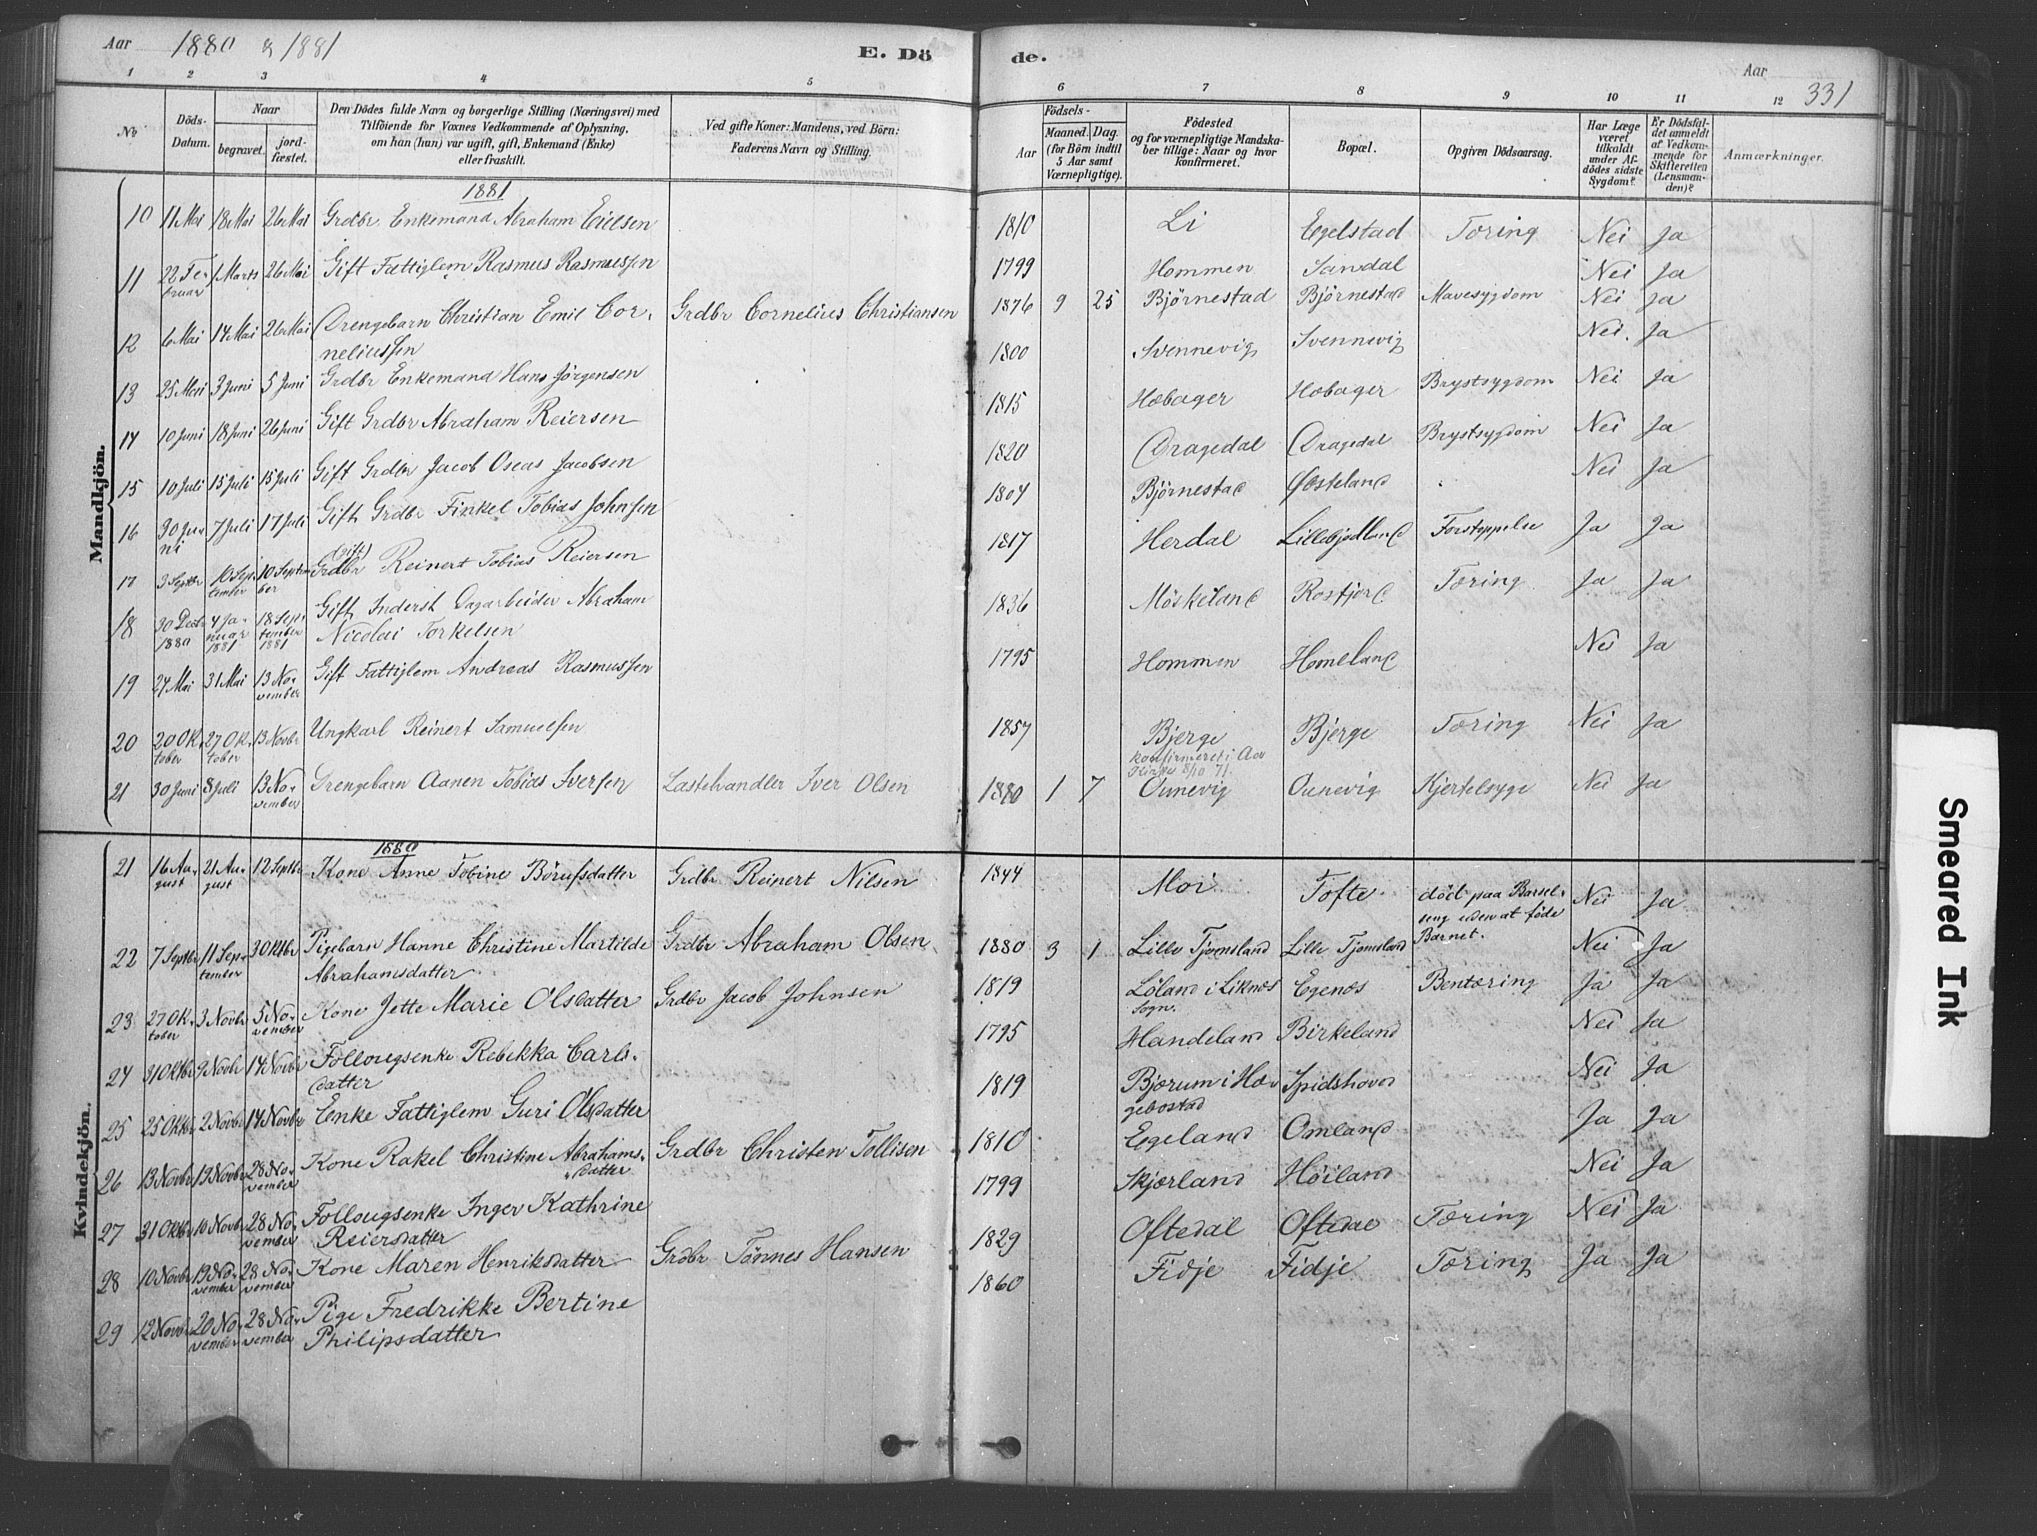 Aar 1880 & 1881 E. Dö de. Aar 331
1 2 3 4 5 6 7 8 9 10 11 12
No
Döds-Datum.
Naar
begravet.
jord-fæstet.
Den Dödes fulde Navn og borgerlige Stilling (Næringsvei) med
Tilföiende for Voxnes Vedkommende af Oplysning,
om han (hun) var ugift, gift, Enkemand (Enke)
eller fraskilt.
Ved gifte Koner: Mandens, ved Börn:
Faderens Navn og Stilling.
Födsels-
Aar Maaned. Dag.
(for Börn indtil
5 Aar samt
Værnepligtige).
Födested
og for værnepligtige Mandska-
ber tillige: Naar og hvor
konfirmeret.
Bopæl.
Opgiven Dödsaarsag.
Har Læge
været
tilkaldt
under Af-
dödes sidste
Sygdom?
Er Dödsfal-
det anmeldt
af Vedkom-
mende for
Skifteretten
(Lensmen-
den)?
Anmærkninger.
Mandkjön.
1881
10 11 Mai 18 Mai 26 Mai Grdbr. Enkemand Abraham Eielsen 1810 Li Egelstad Tæring Nei Ja
11 22 Fe-bruar 1 Marts 26 Mai Gift Fattiglem Rasmus Rasmussen 1799 Hommen Sandal Nei Ja
12 6 Mai 14 Mai 26 Mai Drengebarn Christian Emil Cor- Grdbr Cornelius Christiansen 1876 9 25 Björnestad Björnestad Mavesygdom Nei Ja
neliussen
13 25 Mai 3 Juni 5 Juni Grdbr Enkemand Hans Jörgensen 1800 Svennevig Svennevig Nei. Ja
14 10 Juni 18 Juni 26 Juni Gift Grdbr Abraham Reiersen 1815 Hobager Hobager Brystsygdom Nei Ja
15 10 Juli 15 Juli 15 Juli Gift Grdbr Jacob Oseas Jacobsen 1820 Dragedal Dragedal Brystsygdom Nei Ja
16 30 Ju-ni 7 Juli 17 Juli Gift Grdbr Finkel Tobias Johnsen 1807 Björnestad Østeland Nei Ja
17 3 Septbr 10 Sep-tember 10 Septem-ber (gift) Grdbr Reinert Tobias Reiersen 1817 Herdal Lillebjodland Forstoppelse Ja Ja
18 30 Decbr 1880 4 Ja-nuar 1881 18 Sep-tember 1881 Gift Inderst Dagarbeider Abraham 1836 Möskeland Rosfjord Tæring Ja Ja
Nicolai Torkelsen
19 24 Mai 31 Mai 13 No-vember Gift Fattiglem Andreas Rasmussen 1795 Hommen Homeland Nei Ja
20 20 Ok-tober 27 Ok-tober 13 Novbr Ungkarl Reinert Samuelsen 1857 Bjerge Bjerge Tæring Nei Ja
konfirmeret i Aa
Kirke 8/10 71.
21 30 Juni 8 Juli 13 No-vember Drengebarn Aanen Tobias Iversen Lastehandler Iver Olsen 1880 1 7 Ounevig Ounevig Kjertelsyge Nei Ja
Kvindekjön.
1880
21 16 Au-gust 21 Au-gust 12 Septbr Kone Anne Tobine Börufsdatter Grdbr Reinert Nilsen 1844 Moi Tofte död paa Barsel-
seng uden at föde
Barnet. Nei Ja
22 7 Septbr 11 Sep-tember 3 Oktbr Pigebarn Hanne Christine Martilde Grdbr Abraham Olsen 1880 3 1 Lille Tjomsland Lille Tjomsland Nei Ja
Abrahamsdatter
23 27 Ok-tober 3 Novbr 5 No-vember Kone Jette Marie Olsdatter Grdbr Jacob Johnsen 1819 Löland i Liknes Sogn. Egenes Bentæring Ja Ja
24 31 Oktbr 9 Novbr 14 Novbr Follougsenke Rebekka Carls- 1795 Handeland Birkeland Nei Ja
datter
25 25 Oktbr 2 Novbr 14 Novbr Enke Fattiglem Guri Olsdatter 1819 Bjorum i Hæ-gebostad Spidshoved Nei Ja
26 13 Novbr 19 Novbr 28 No-vember Kone Rakel Christine Abrahams- Grdbr Christen Tollisen 1810 Egeland Omland Ja Ja
datter
27 31 Oktbr 10 Novbr 28 No-vember Follougsenke Inger Kathrine 1799 Skjærland Höiland Nei Ja
Reiersdatter
28 10 Novbr 19 No-vember 28 No-vember Kone Maren Henriksdatter Grdbr Tönnes Hansen 1829 Oftedal Oftedal Tæring Nei Ja
29 12 Novbr 20 No-vember 28 No-vember Pige Fredrikke Bertine 1860 Fidje Fidje Tæring Ja Ja
Philipsdatter
Smeared Ink